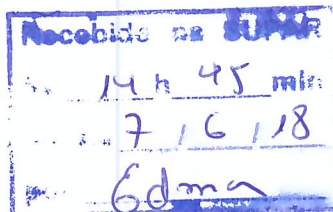 Recebido na SUPAR
14 h 45 min
7 / 6 / 18
Edma